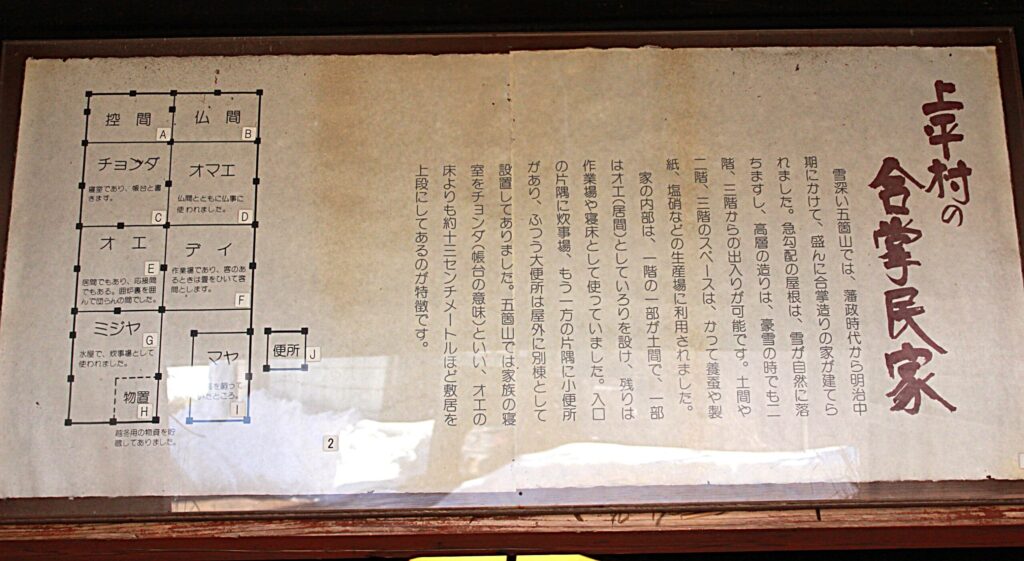 上平村の
合掌民家
雪深い五箇山では、藩政時代から明治中
期にかけて、盛んに合掌造りの家が建てら
れました。急勾配の屋根は、雪が自然に落
ちますし、高層の造りは、豪雪の時でも二
階、三階からの出入りが可能です。土間や
二階、三階のスペースは、かつて養蚕や製
紙、塩硝などの生産場に利用されました。
家の内部は、一階の一部が土間で、一部
はオエ(居間)としていろりを設け、残りは
作業場や寝床として使っていました。入口
の片隅に炊事場、もう一方の片隅に小便所
があり、ふつう大便所は屋外に別棟として
設置してありました。五箇山では家族の寝
室をチョンダ(帳台の意味)といい、オエの
床よりも約十三センチメートルほど敷居を
上段にしてあるのが特徴です。
控間
A
仏間
B
チョンダ
寝室であり、帳台と書
きます。
C
オマエ
仏間とともに仏事に
使われました。
D
オエ
E
居間でもあり、応接間
でもある。囲炉裏を囲
んで団らんの間でした。
デイ
作業場であり、客のあ
るときは畳をひいて客
間とします。
F
ミジヤ
G
水屋で、炊事場として
使われました。
物置
H
越冬用の物資を貯
蔵してありました。
マヤ
を飼って
いたところ。
I
便所
J
2